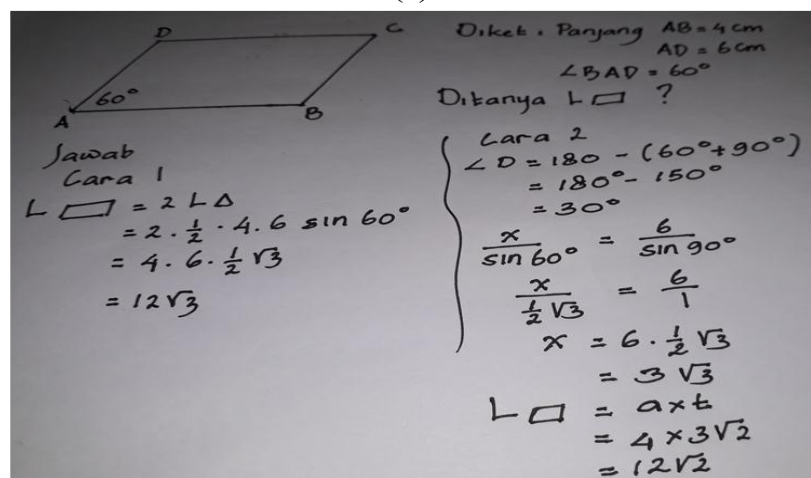 D
C
60°
A
B
Diket. Panjang AB = 4 cm
AD = 6 cm
∠BAD = 60°
Ditanya L ▱ ?
Jawab
Cara 1
L ▱ = 2 L Δ
= 2 · 1/2 · 4 . 6 sin 60°
= 4 · 6 · 1/2 √3
= 12√3
Cara 2
∠D = 180 - (60° + 90°)
= 180° - 150°
= 30°
x/sin 60° = 6/sin 90°
x/(1/2 √3) = 6/1
x = 6 · 1/2 √3
= 3 √3
L ▱ = a x t
= 4 x 3√2
= 12√2